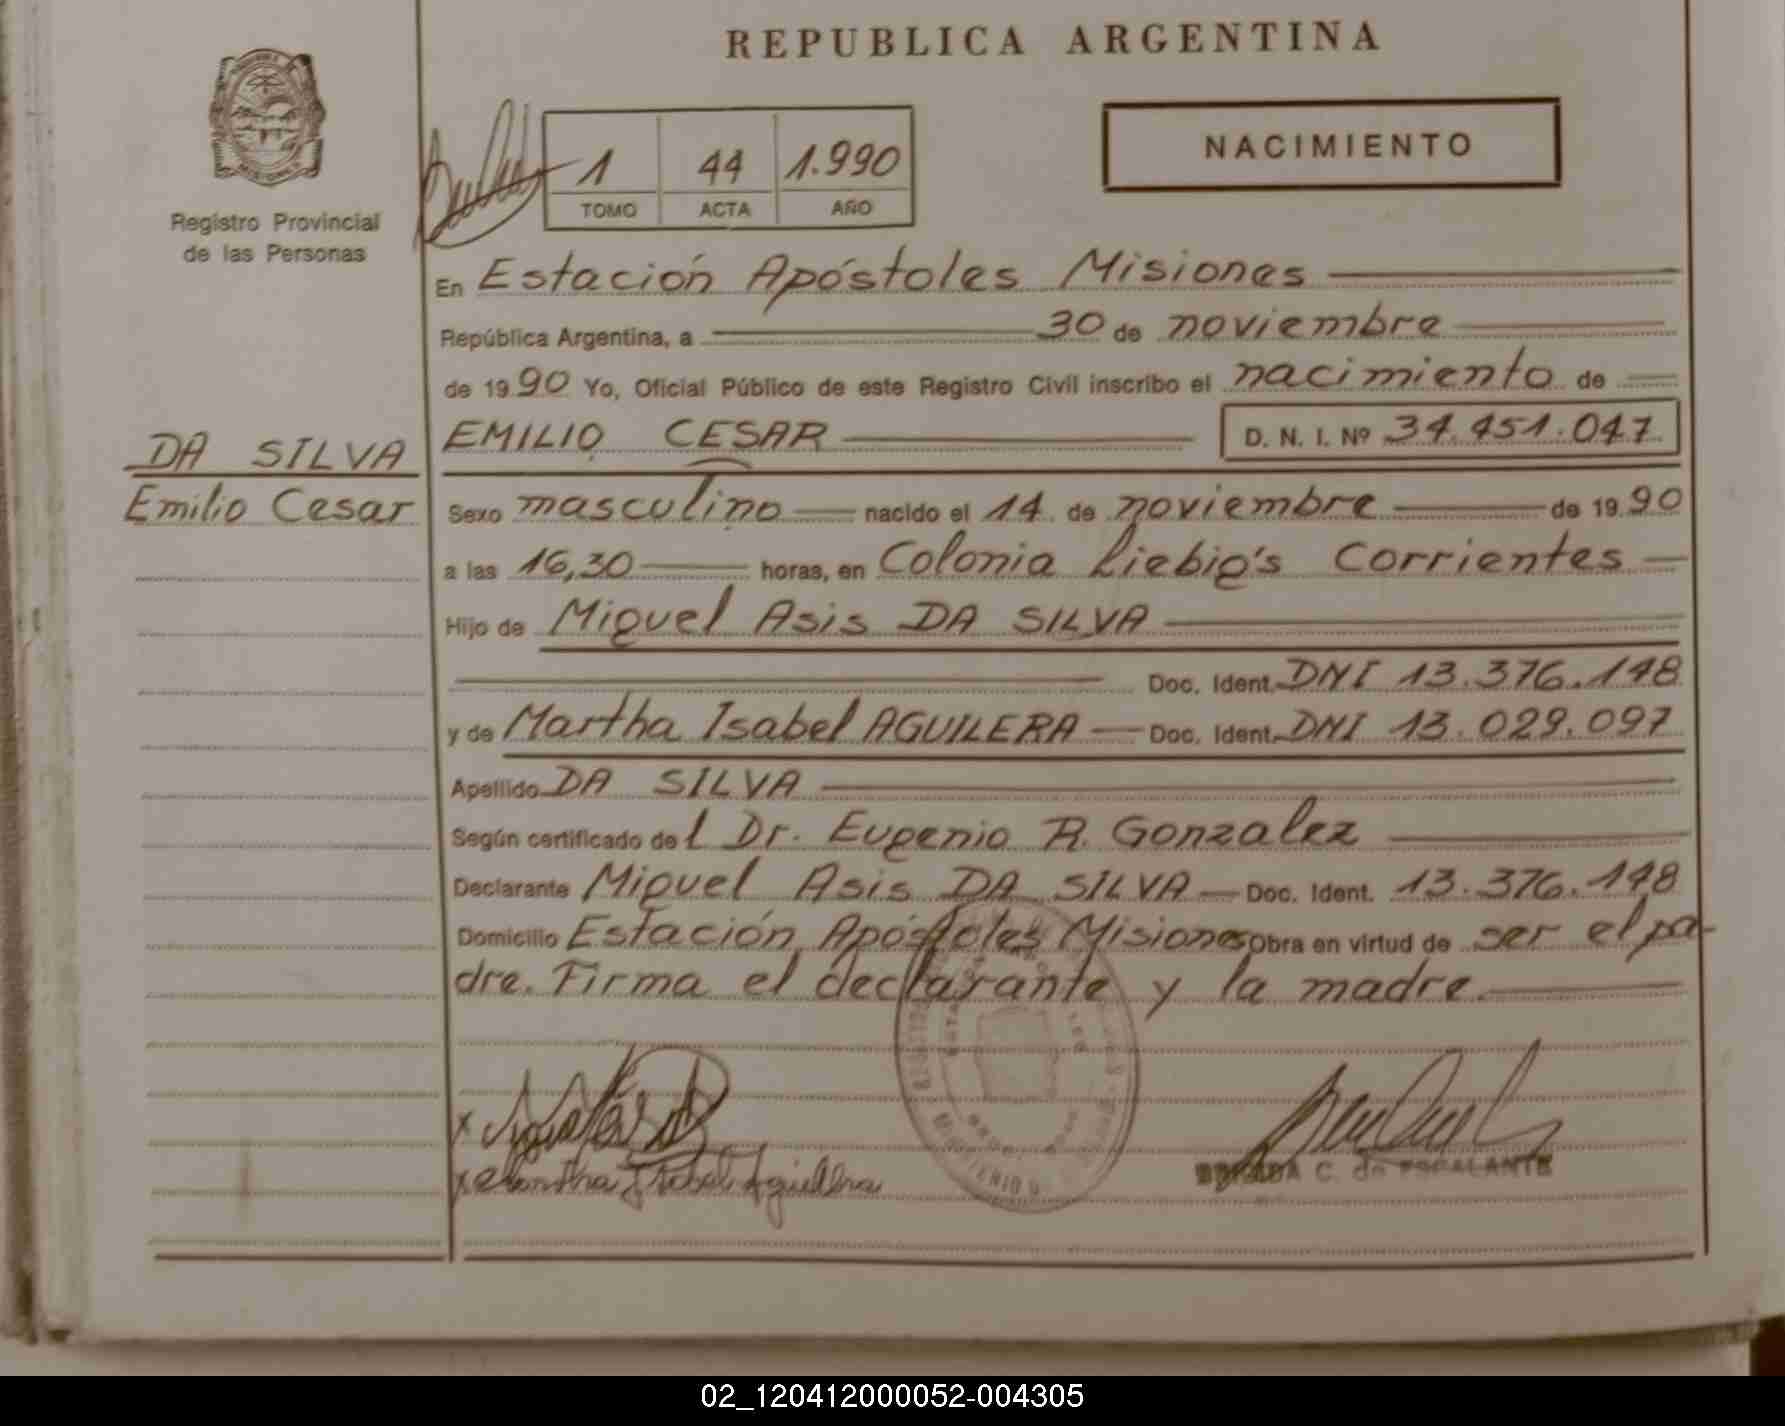 REPUBLICA ARGENTINA
Registro Provincial
de las Personas
1 44 1.990
TOMO ACTA AÑO
NACIMIENTO
En Estación Apóstoles Misiones
República Argentina, a 30 de noviembre
de 1990 Yo, Oficial Público de este Registro Civil inscribo el nacimiento de
EMILIO CESAR D. N. I. Nº 34.451.047
DA SILVA
Emilio Cesar
Sexo masculino nacido el 14 de noviembre de 1990
a las 16,30 horas, en Colonia Liebig's Corrientes
Hijo de Miguel Asis DA SILVA
Doc. Ident. DNI 13.376.148
y de Martha Isabel AGUILERA Doc. Ident. DNI 13.029.097
Apellido DA SILVA
Según certificado del Dr. Eugenio R. Gonzalez
Declarante Miguel Asis DA SILVA Doc. Ident. 13.376.148
Domicilio Estación Apóstoles Misiones Obra en virtud de ser el pa-
dre. Firma el declarante y la madre.
x
x Martha Isabel Aguilera
C. de ESCALANTE
02_120412000052-004305